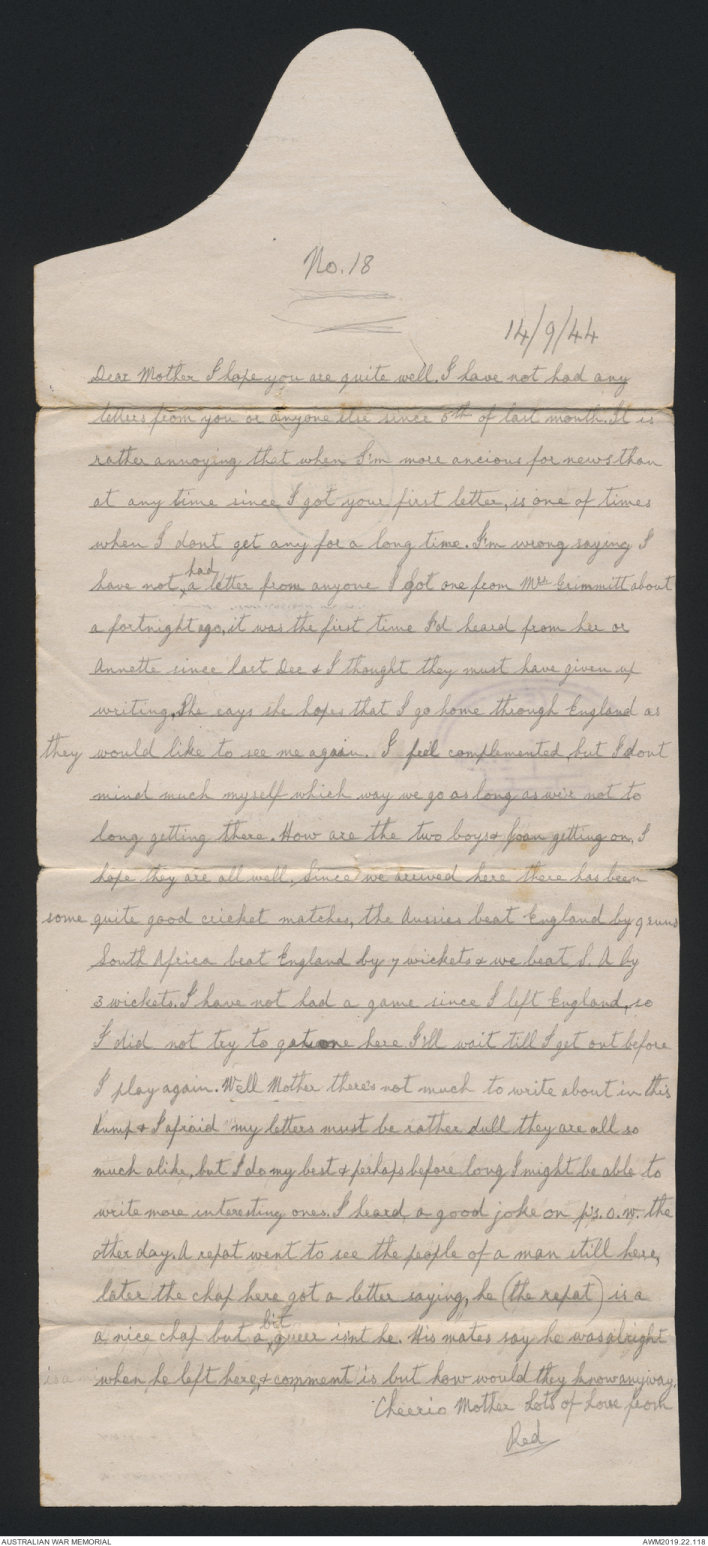 No. 18
14/9/44
Dear Mother I hope you are quite well. I have not had any
letters from you or anyone else since 5th of last month. It is
rather annoying that when I'm more ancious for news than
at any time since I got your first letter, is one of times
when I dont get any for a long time. I'm wrong saying I
have not had a letter from anyone I got one from Mrs Grimmitt about
a fortnight ago, it was the first time I'd heard from her or
Annette since last Dec & I thought they must have given up
writing. She says she hopes that I go home through England as
they would like to see me again. I feel complemented, but I dont
mind much myself which way we go as long as we're not to
long getting there. How are the two boys & Joan getting on, I
hope they are all well. Since we arrived here there has been
some quite good cricket matches, the Aussies beat England by 9 runs
South Africa beat England by 7 wickets & we beat S. A by
3 wickets. I have not had a game since I left England, so
I did not try to get one here I'll wait till I get out before
I play again. Well Mother there's not much to write about in this
dump & I afraid my letters must be rather dull they are all so
much alike, but I do my best & perhaps before long I might be able to
write more interesting ones. I heard a good joke on p's. o. w. the
other day. A repat went to see the people of a man still here,
later the chap here got a letter saying, he (the repat) is a
a nice chap but a bit queer isnt he. His mates say he was alright
when he left here, & comment is but how would they know anyway.
Cheerio Mother Lots of Love from
Red
AUSTRALIAN WAR MEMORIAL
AWM2019.22.118